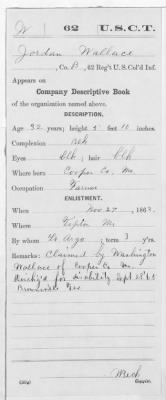 W | 62 | U.S.C.T.
Jordan Wallace
Co. B, 62 Reg't U.S. Col'd Inf.
Appears on
Company Descriptive Book
of the organization named above.
DESCRIPTION.
Age 32 years; height 5 feet 10 inches.
Complexion Blk
Eyes Blk; hair Blk
Where born Cooper Co, Mo.
Occupation Farmer
ENLISTMENT.
When Nov 27, 1863.
Where Tipton Mo
By whom term 3 y'rs.
Remarks: Claimed by Washington
Wallace of Cooper Co Mo.
Disch'g'd for disability Sept 28 65
Brownsville Tex
Copyist.